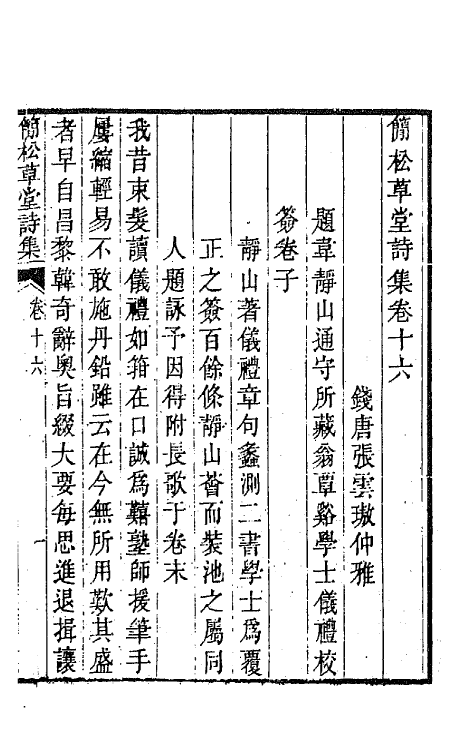 簡松草堂詩集卷十六
錢唐張雲璈仲雅
題韋靜山通守所藏翁覃谿學士儀禮校
簽卷子
靜山著儀禮章句蠡測二書學士為覆
正之簽百餘條靜山薈而裝池之屬同
人題詠予因得附長歌于卷末
我昔束髮讀儀禮如箝在口誠為囏塾師援筆手
屢縮輕易不敢施丹鉛雖云在今無所用歎其盛
者早自昌黎韓奇辭奧旨綴大要每思進退揖讓
簡松草堂詩集
卷十六
一